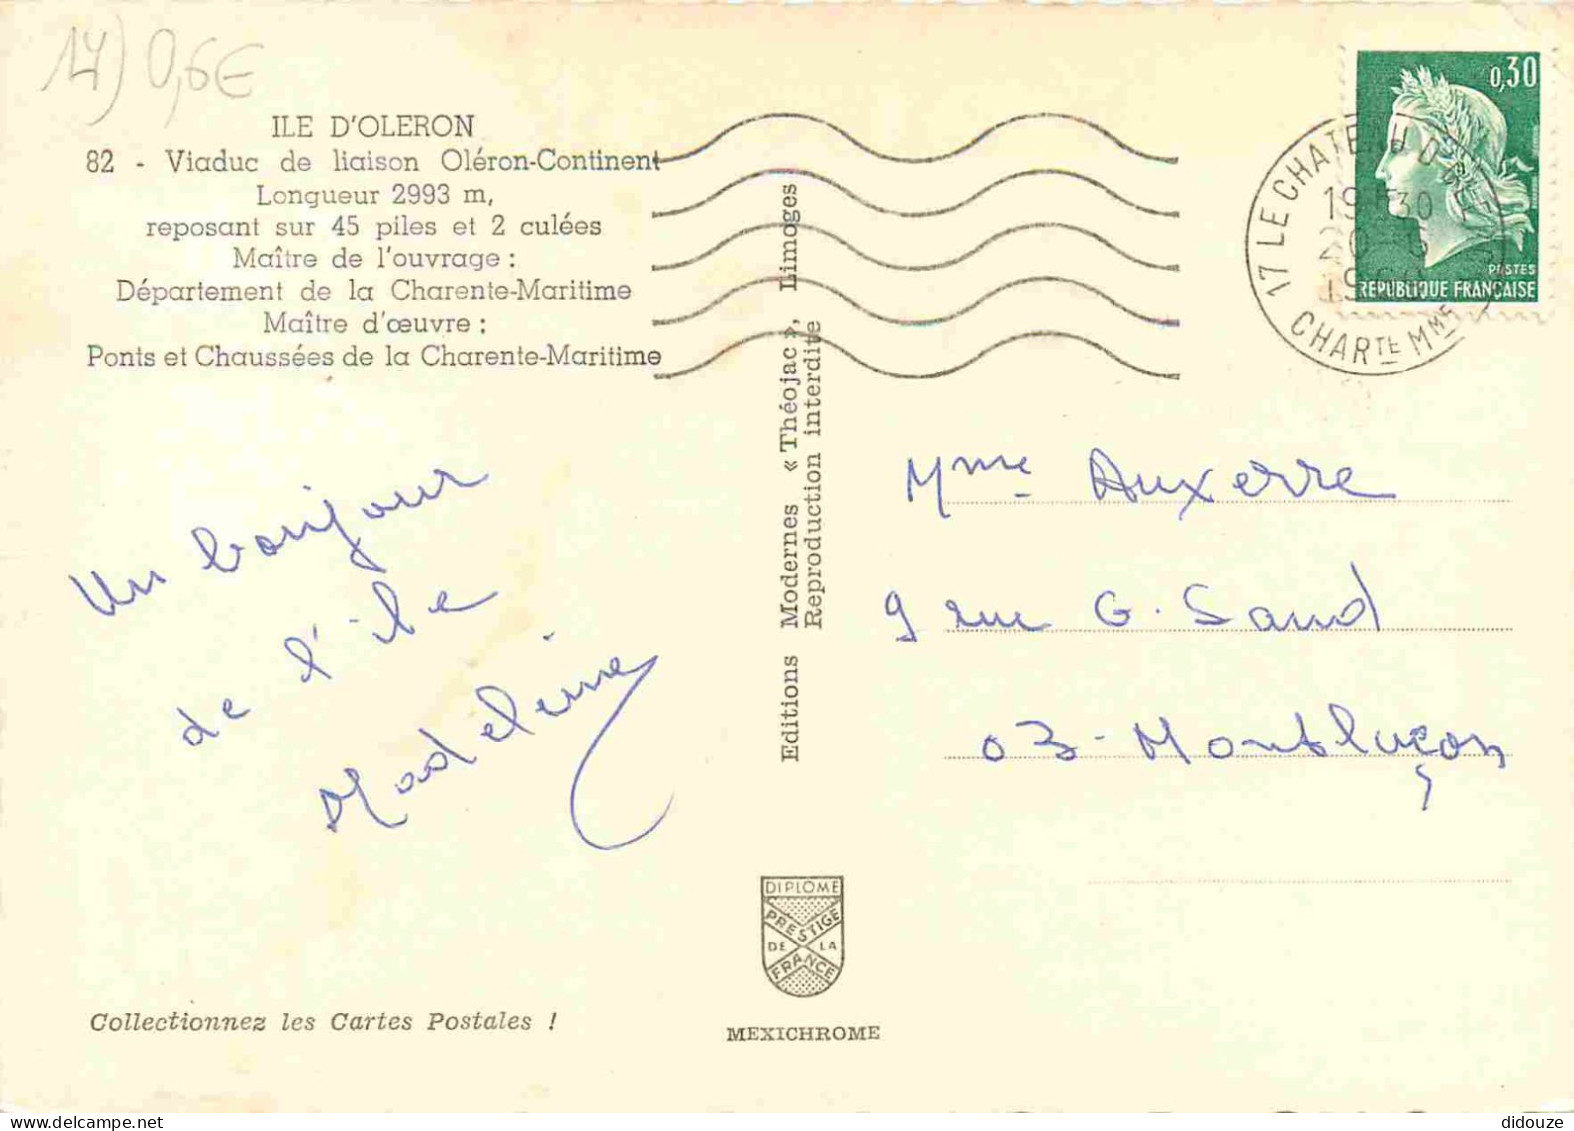 17) 0,6€
ILE D'OLERON
82 - Viaduc de liaison Oléron-Continent
Longueur 2993 m,
reposant sur 45 piles et 2 culées
Maître de l'ouvrage :
Département de la Charente-Maritime
Maître d'œuvre :
Ponts et Chaussées de la Charente-Maritime
Un bonjour
de l'île
Madeleine
Collectionnez les Cartes Postales !
Editions Modernes « Théojac », Limoges
Reproduction interdite
DIPLOME
PRESTIGE
DE LA
FRANCE
MEXICHROME
0,30
POSTES
REPUBLIQUE FRANÇAISE
17 LE CHATEAU D'
CHARTE MME
Mme Auxerre
9 rue G. Sand
03 - Montluçon
didouze